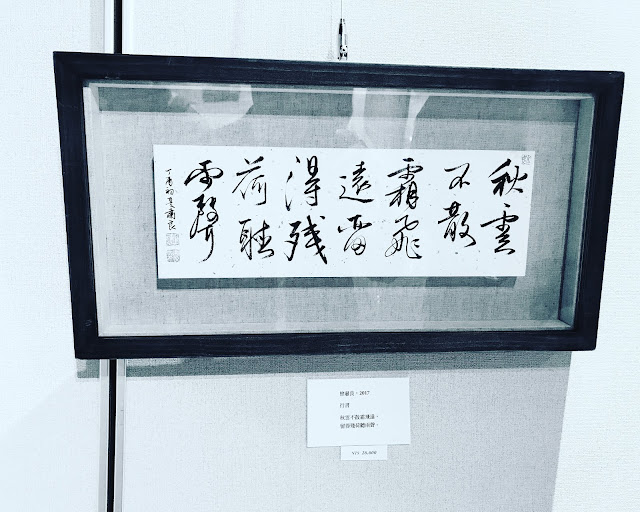 秋雲
不散
霜飛
遠留
得残
荷聽
雨聲
丁酉初夏肅良
曾肅良，2017
行書
秋雲不散霜飛遠，
留得殘荷聽雨聲。
NT$